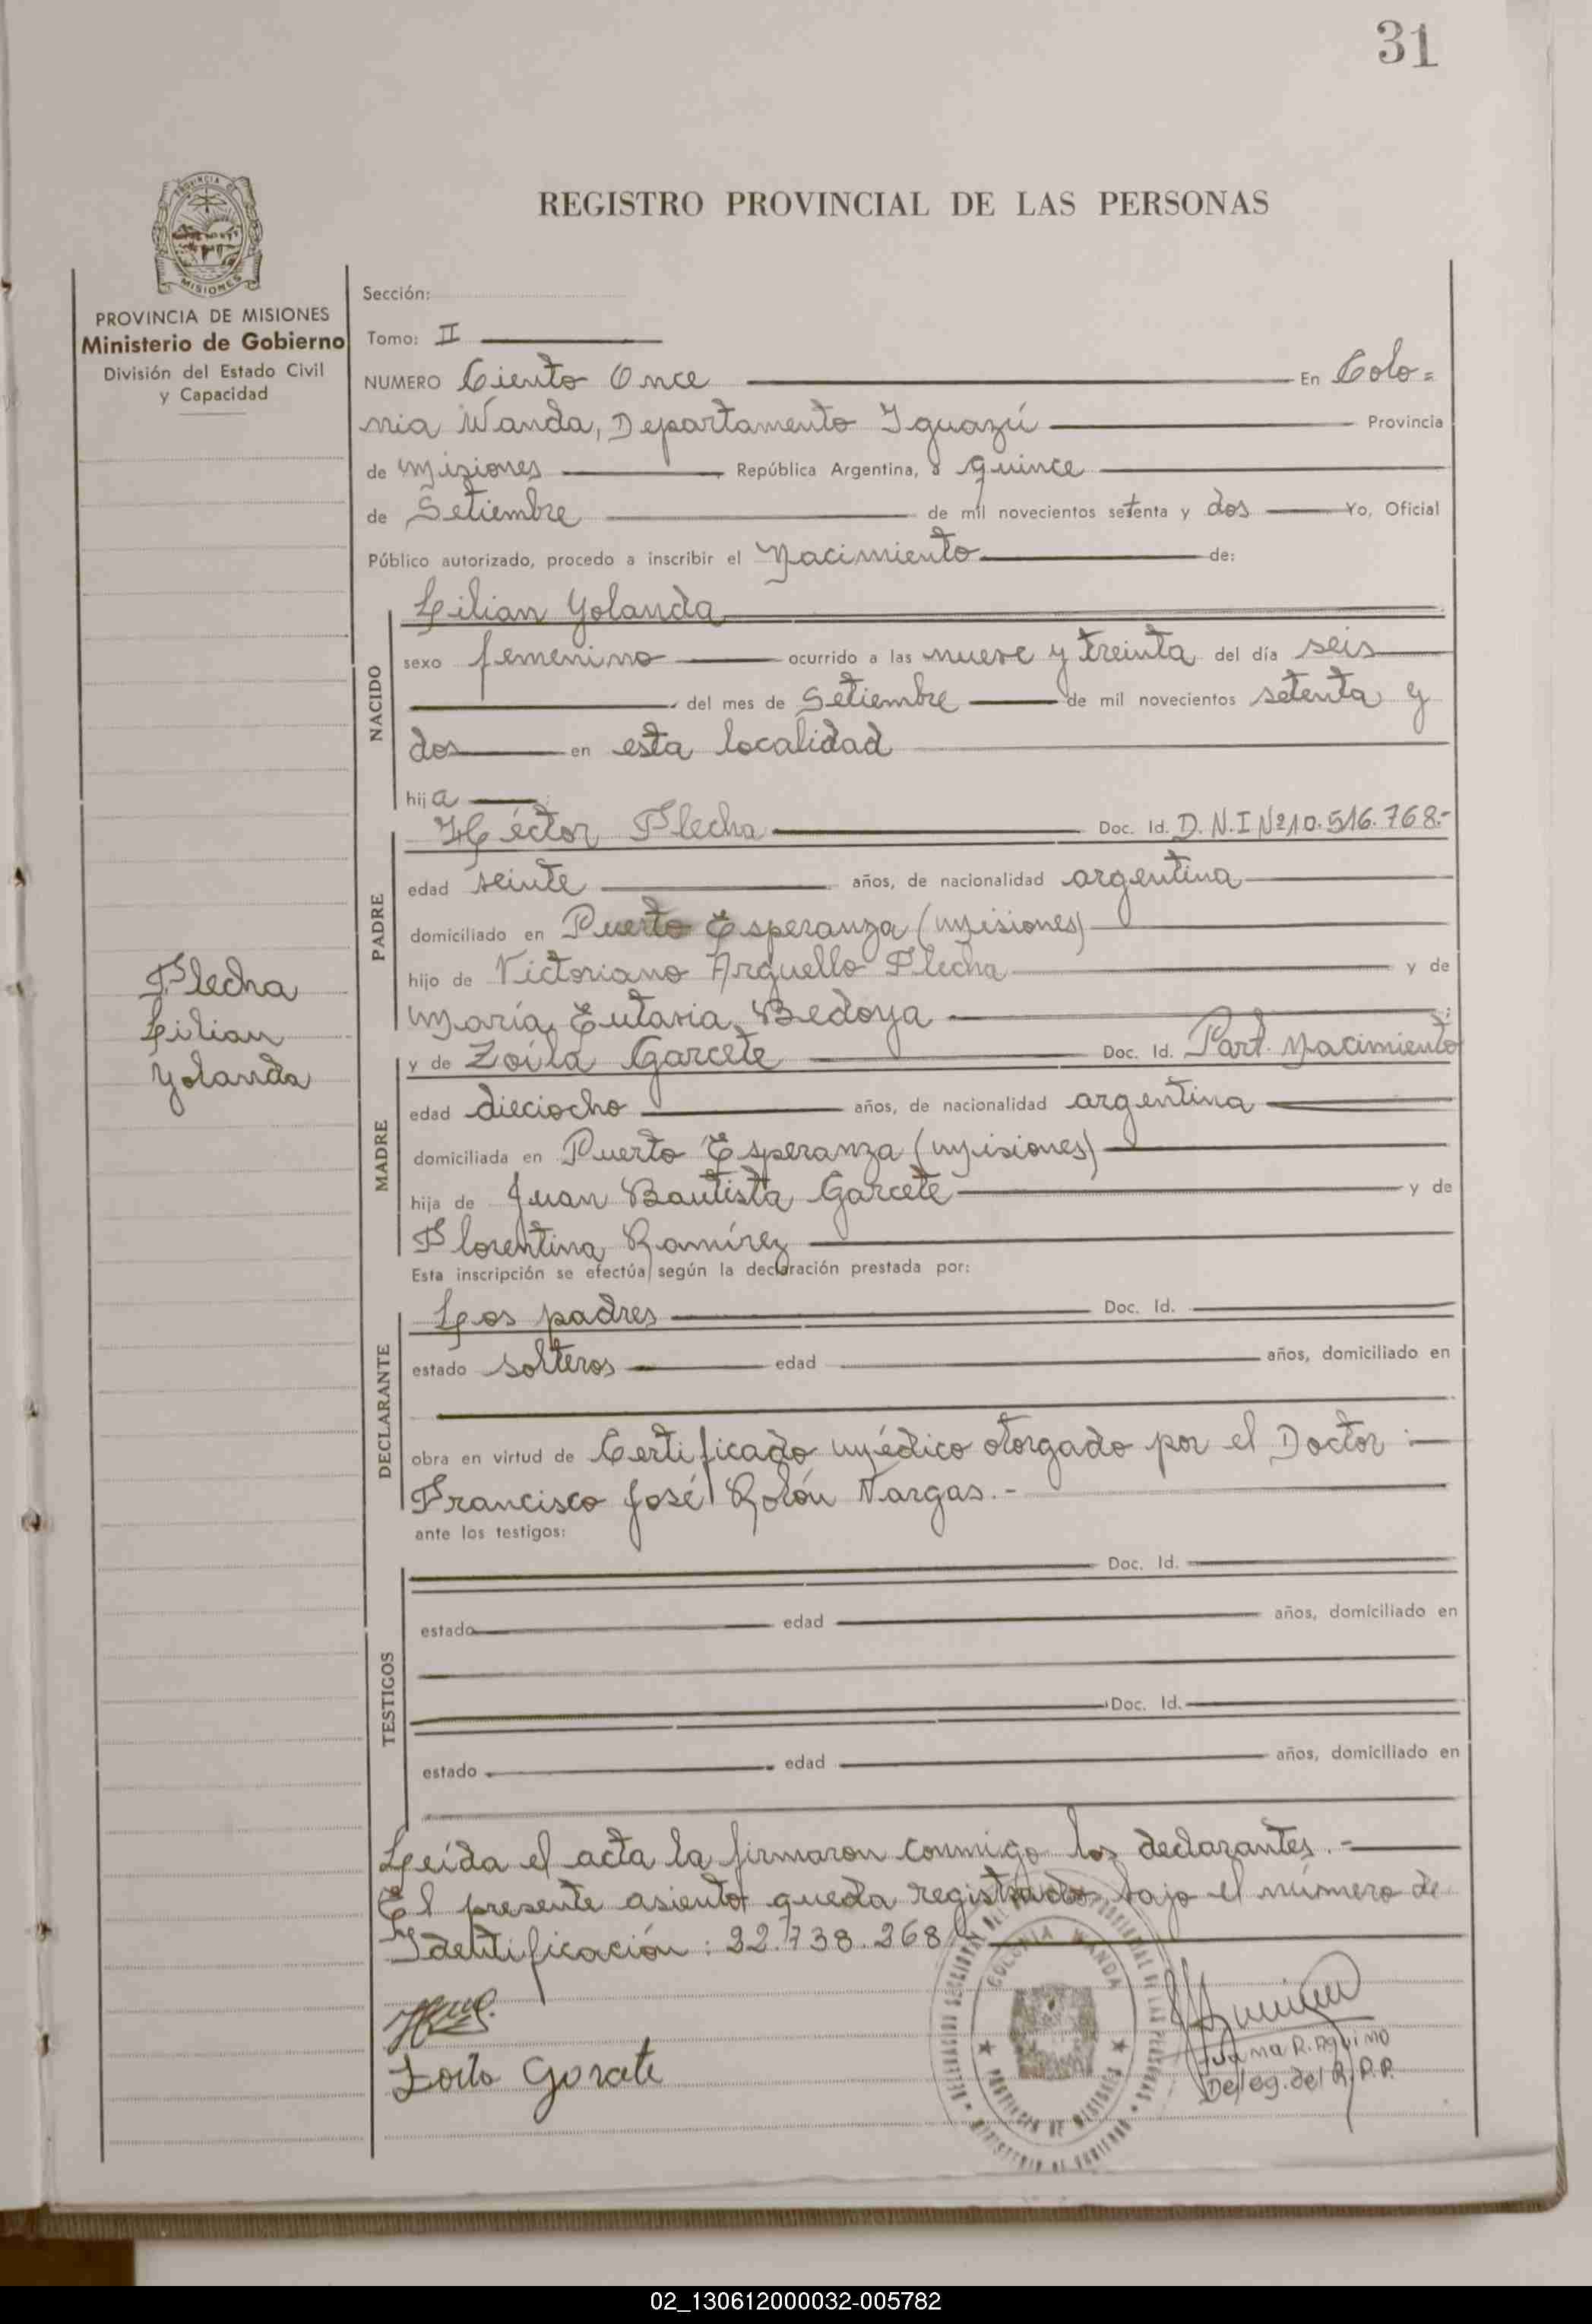 31
REGISTRO PROVINCIAL DE LAS PERSONAS
PROVINCIA DE MISIONES
Ministerio de Gobierno
División del Estado Civil
y Capacidad
Flecha
Lilian
Yolanda
Sección:
Tomo: II
NUMERO Ciento Once En Colo=
nia Wanda, Departamento Iguazú Provincia
de Misiones República Argentina, a quince
de Setiembre de mil novecientos setenta y dos Yo, Oficial
Público autorizado, procedo a inscribir el Nacimiento de:
NACIDO
Lilian Yolanda
sexo femenino ocurrido a las nueve y treinta del día seis
del mes de Setiembre de mil novecientos setenta y
dos en esta localidad
hija
PADRE
Héctor Flecha Doc. Id. D.N.I Nº10.516.768.-
edad veinte años, de nacionalidad argentina
domiciliado en Puerto Esperanza (Misiones)
hijo de Victoriano Arguello Flecha y de
María Eutasia Bedoya
MADRE
y de Zoila Garcete Doc. Id. Part. Nacimiento
edad dieciocho años, de nacionalidad argentina
domiciliada en Puerto Esperanza (Misiones)
hija de Juan Bautista Garcete y de
Florentina Ramírez
Esta inscripción se efectúa según la declaración prestada por:
DECLARANTE
Los padres Doc. Id.
estado solteros edad años, domiciliado en
obra en virtud de Certificado médico otorgado por el Doctor :
Francisco José Rolón Vargas.-
ante los testigos:
TESTIGOS
Doc. Id.
estado edad años, domiciliado en
Doc. Id.
estado edad años, domiciliado en
Leída el acta la firmaron conmigo los declarantes.-
El presente asiento queda registrado bajo el número de
Identificación: 22.738.268
Zoila Garcete
COLONIA WANDA
PROVINCIA DE MISIONES
MINISTERIO DE GOBIERNO
Juana R. Aquino
Deleg. del R.P.P.
02_130612000032-005782